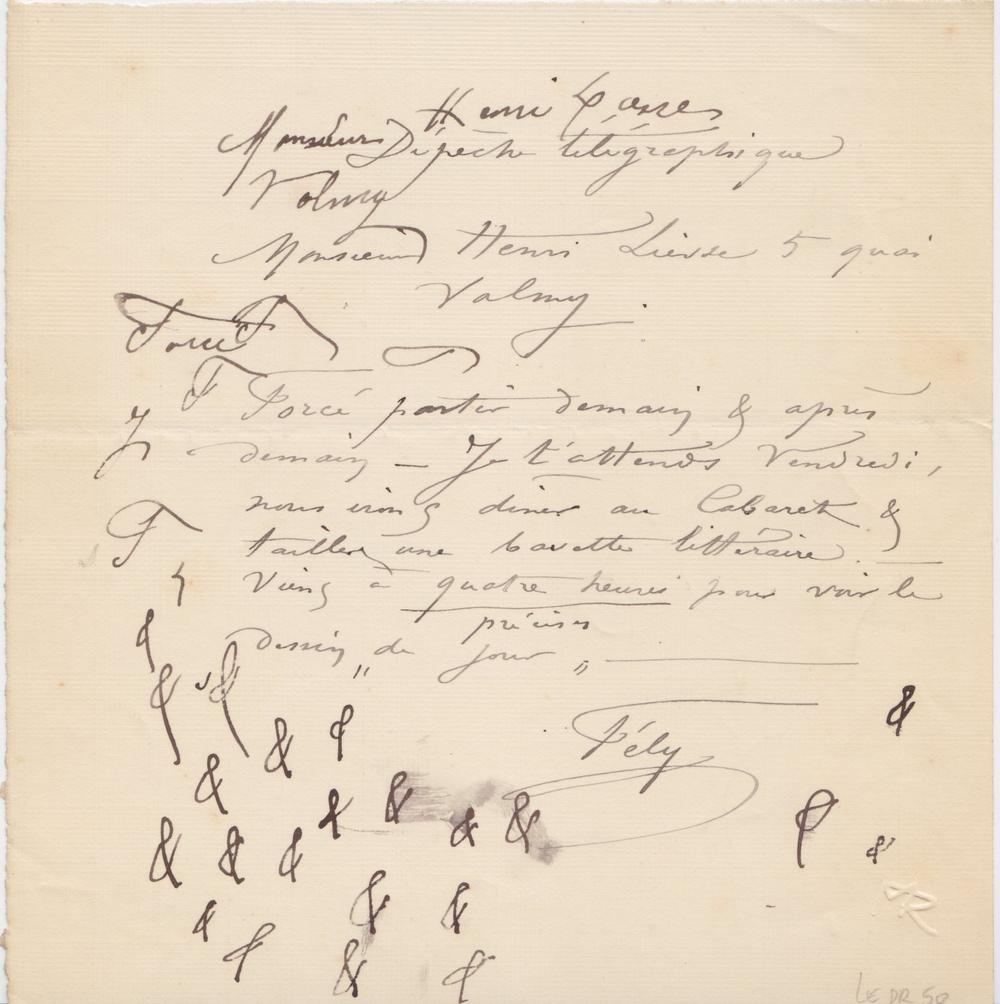 Henri
Monsieur Dépèche télégraphique
Valmy
Monsieur Henri Liesse 5 quai
Valmy.
Forcé F
F Forcé partir demain & après
J demain — Je t'attends Vendredi,
nous irons diner au Cabaret &
F tailler une bavette littéraire. —
Viens à quatre heures pour voir le
précises
dessin „ de jour „ —
& & &
Fély
& &
& & & & & &
& & & &
& & &
& & &
LE DR 50